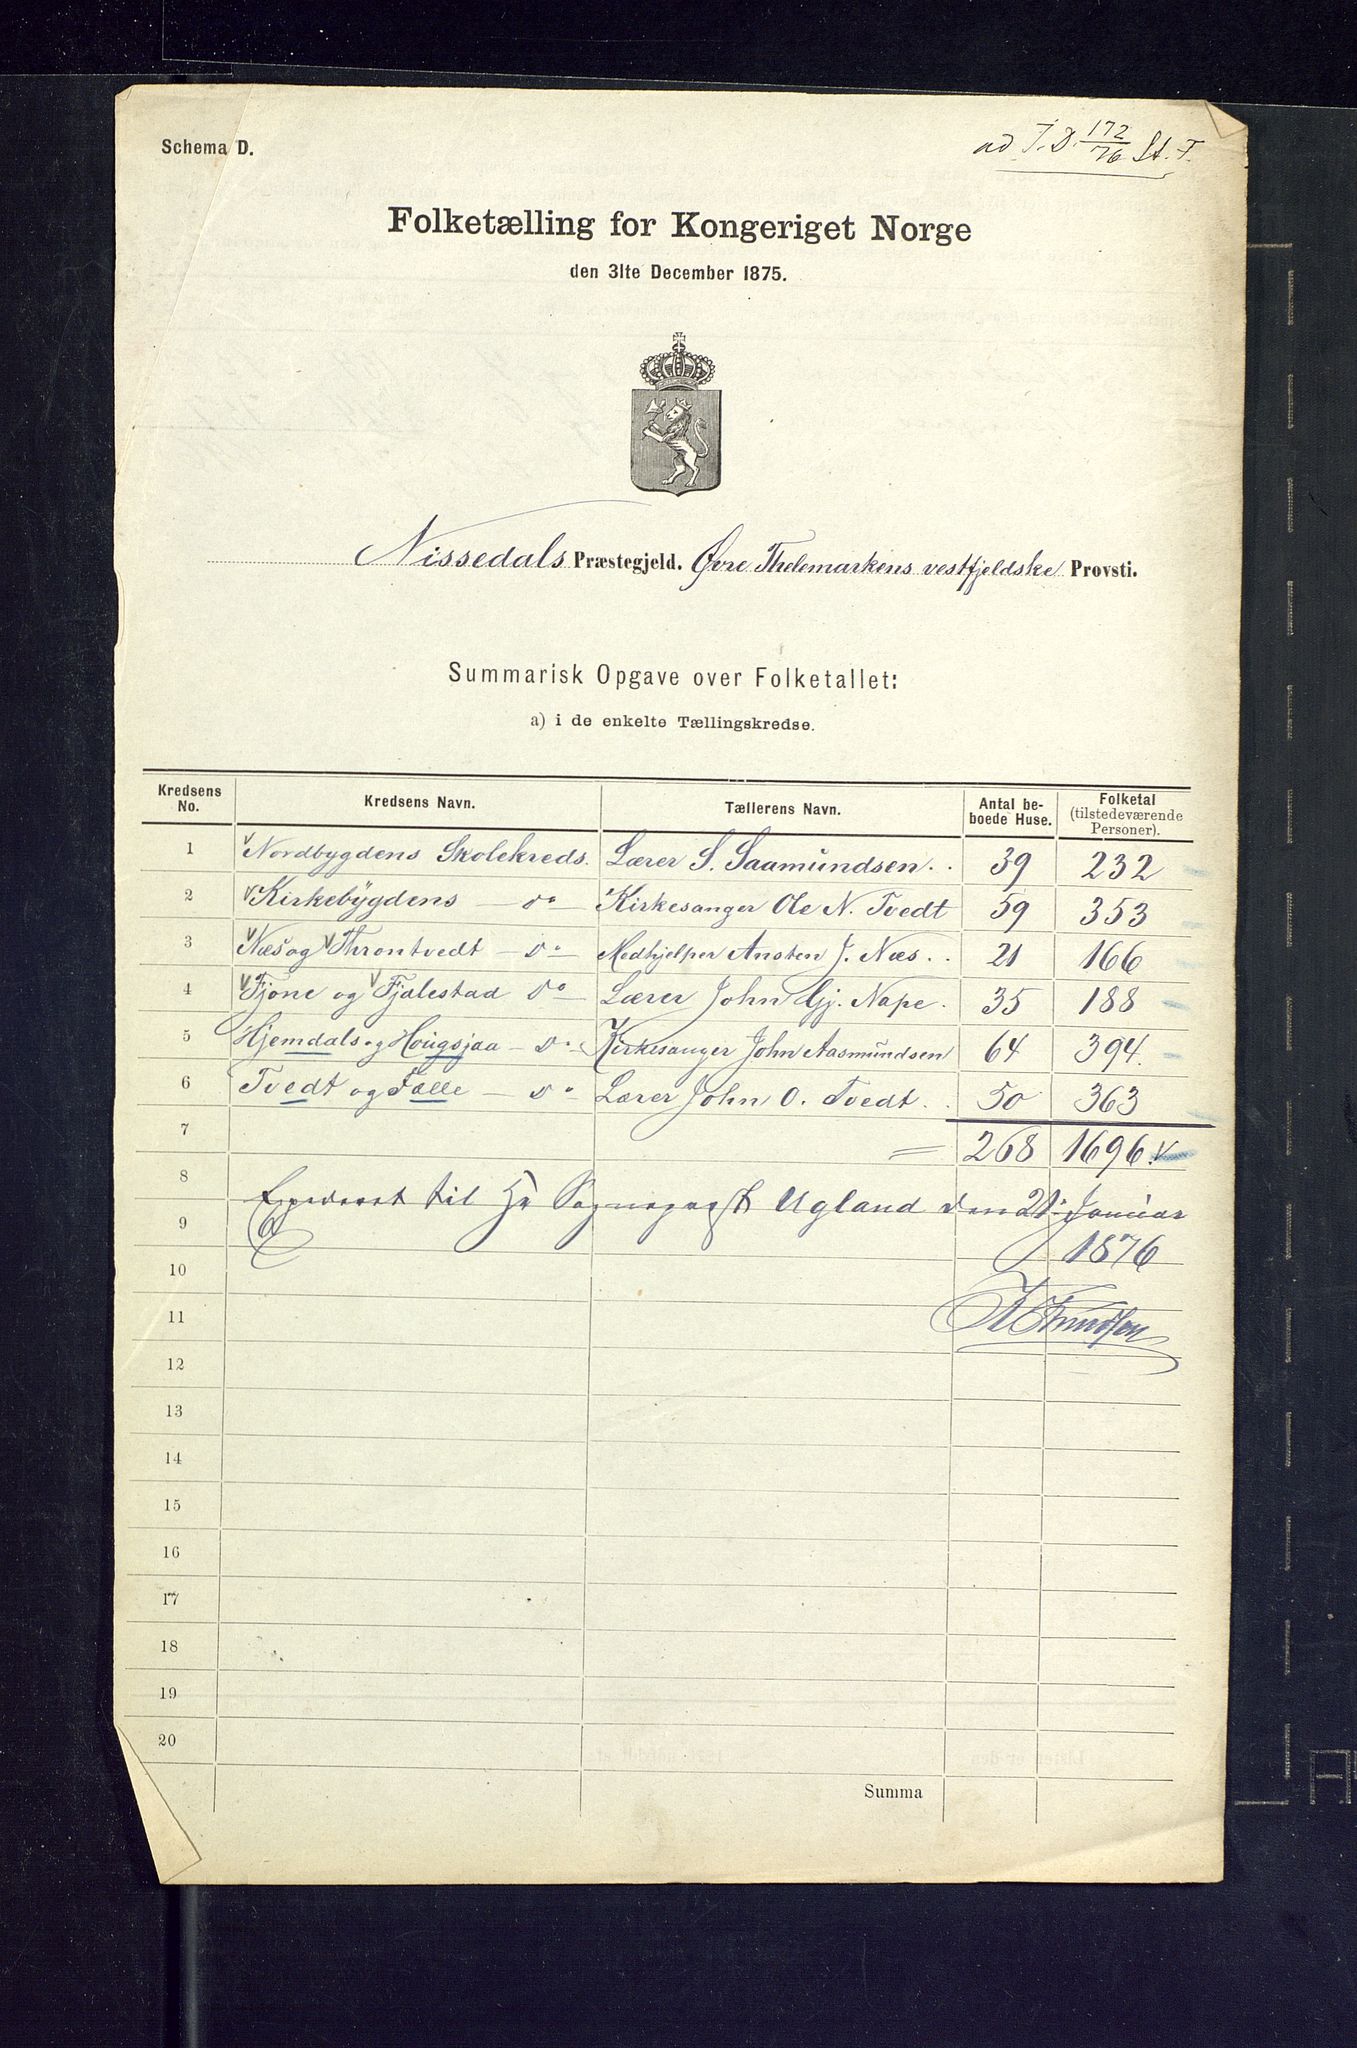 Schema D.
ad J. D. 172/76 St. T.
Folketælling for Kongeriget Norge
den 31te December 1875.
Nissedals Præstegjeld. Øvre Thelemarkens vestfjeldske Provsti.
Summarisk Opgave over Folketallet:
a) i de enkelte Tællingskredse.
Kredsens No. Kredsens Navn. Tællerens Navn. Antal beboede Huse. Folketal (tilstedeværende Personer).
1 Nordbygdens Skolekreds. Lærer S. Saamundsen. 39 232
2 Kirkebygdens — do — Kirkesanger Ole N. Tvedt 59 353
3 Næs og Throntvedt — do — Medhjelper Ansten J. Næs. 21 166
4 Fjone og Fjalestad do — Lærer John Gj. Nape. 35 188
5 Hjemdals og Hougsjaa — do — Kirkesanger John Aasmundsen 64 394.
6 Tvedt og Fælle — do — Lærer John O. Tvedt. 50 363
7 = 268 1696. v
8
Expederet til Hr Sogneprest Ugland den 21. Januar
9
1876
10
11 Knudsen
12
13
14
15
16
17
18
19
20
Summa